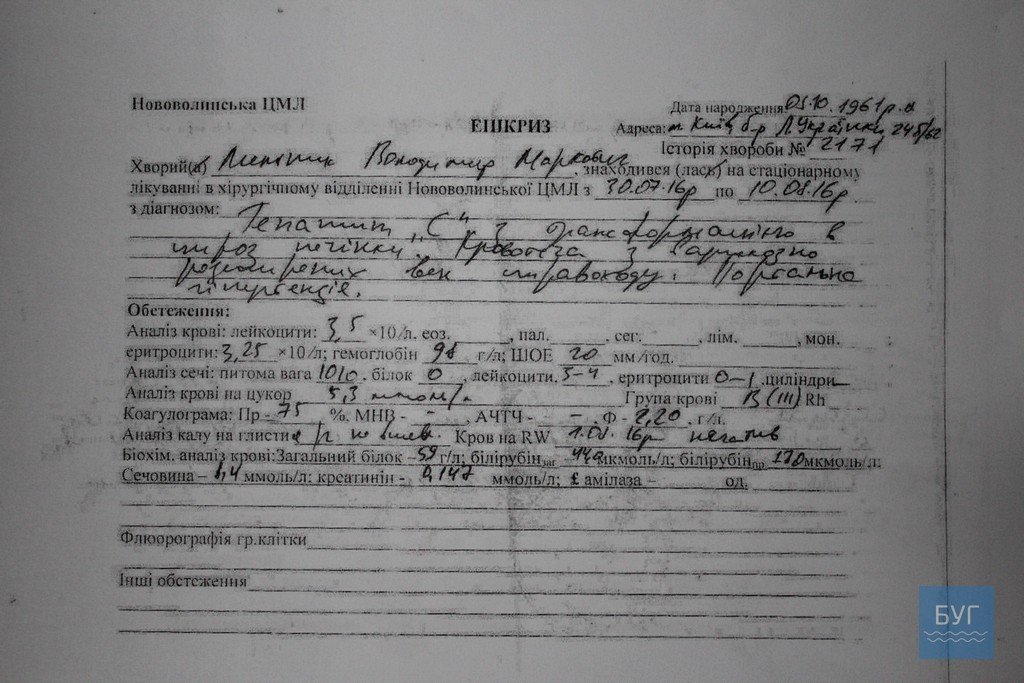 Нововолинська ЦМЛ
Дата народження 05.10.1961р.н
ЕШКРИЗ
Адреса: м. Київ б-р Л.Українки 24б/62
Історія хвороби № 2171
Хворий(а) Володимир Маркович, знаходився (лась) на стаціонарному
лікуванні в хірургічному відділенні Нововолинської ЦМЛ з 30.07.16р по 10.08.16р.
з діагнозом: Гепатит „С" з трансформацією в
цироз печінки. Кровотеча з варикозно
розширених вен стравоходу. Портальна
гіпертензія.
Обстеження:
Аналіз крові: лейкоцити: 3,5 ×10/л. еоз. , пал. , сег. , лім. , мон.
еритроцити: 3,25 ×10/л; гемоглобін 98 г/л; ШОЕ 20 мм/год.
Аналіз сечі: питома вага 1010. білок 0, лейкоцити. 3-4, еритроцити 0-1 .циліндри
Аналіз крові на цукор 5,3 ммоль/л Група крові В (III) Rh
Коагулограма: Пр - 75 %. МНВ - – , АЧТЧ - – Ф - 2,20 г/л.
Аналіз калу на глисти Кров на RW 1.08.16р негатив
Біохім. аналіз крові:Загальний білок - 59 г/л; білірубін заг мкмоль/л; білірубін пр. мкмоль/л.
Сечовина – ммоль/л: креатинін - 0,147 ммоль/л; £ амілаза – од.
Флюорографія гр.клітки
Інші обстеження
БУГ